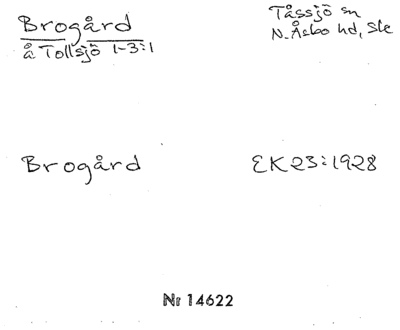 Brogård
å Tollsjö 1-3:1
Tåssjö sn
N. Åsbo hd, Sk
Brogård
EK23:1928
Nr 14622